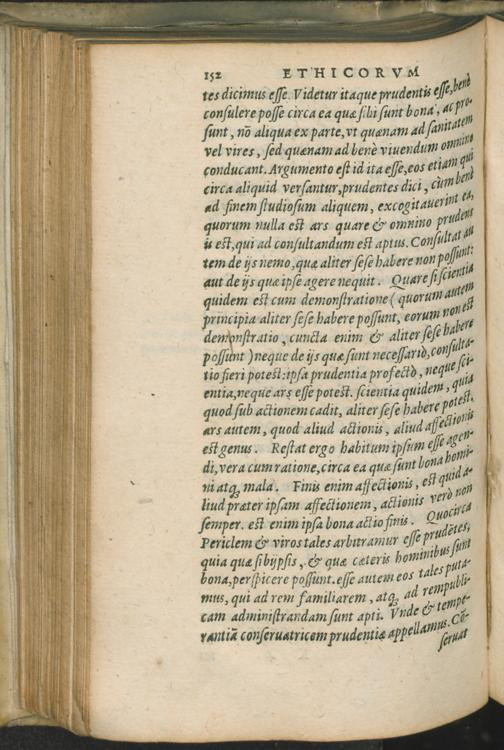 152 ETHICORVM
tes dicimus esse. Videtur itaque prudentis esse, benè
consulere posse circa ea quæ sibi sunt bona, ac pro-
sunt, nō aliqua ex parte, vt quænam ad sanitatem
vel vires, sed quænam ad benè viuendum omnino
conducant. Argumento est id ita esse, eos etiam qui
circa aliquid versantur, prudentes dici, cùm benè
ad finem studiosum aliquem, excogitauerint ea,
quorum nulla est ars quare & omnino prudens
is est, qui ad consultandum est aptus. Consultat au
tem de ijs nemo, quæ aliter sese habere non possunt:
aut de ijs quæ ipse agere nequit. Quare si scientia
quidem est cum demonstratione (quorum autem
principia aliter sese habere possunt, eorum non est
demonstratio, cuncta enim & aliter sese habere
possunt) neque de ijs quæ sunt necessariò, consulta-
tio fieri potest: ipsa prudentia profectò, neque sci-
entia, neque ars esse potest. scientia quidem, quia
quod sub actionem cadit, aliter sese habere potest,
ars autem, quod aliud actionis, aliud affectionis
est genus. Restat ergo habitum ipsum esse agen-
di, vera cum ratione, circa ea quæ sunt bona homi-
ni atq; mala. Finis enim affectionis, est quid a-
liud præter ipsam affectionem, actionis verò non
semper. est enim ipsa bona actio finis. Quocirca
Periclem & viros tales arbitramur esse prudētes,
quia quæ sibijpsis, & quæ cæteris hominibus sunt
bona, perspicere possunt. esse autem eos tales puta-
mus, qui ad rem familiarem, atq; ad rempubli-
cam administrandam sunt apti. Vnde & tempe-
rantiā conseruatricem prudentiæ appellamus. Cō-
seruat